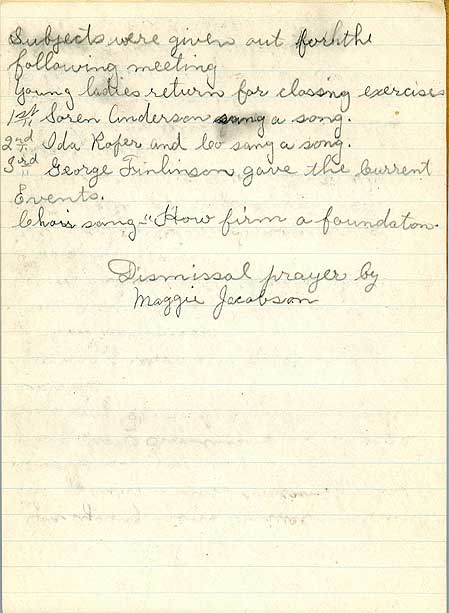 Subjects were given out for the
following meeting
Young ladies return for classing exercises
1st " Soren Anderson sang a song.
2nd " Ida Roper and Co sang a song.
3rd " George Finlinson gave the Current
Events.
Choir sang - "How firm a foundaton.
Dismissal prayer by
Maggie Jacobson